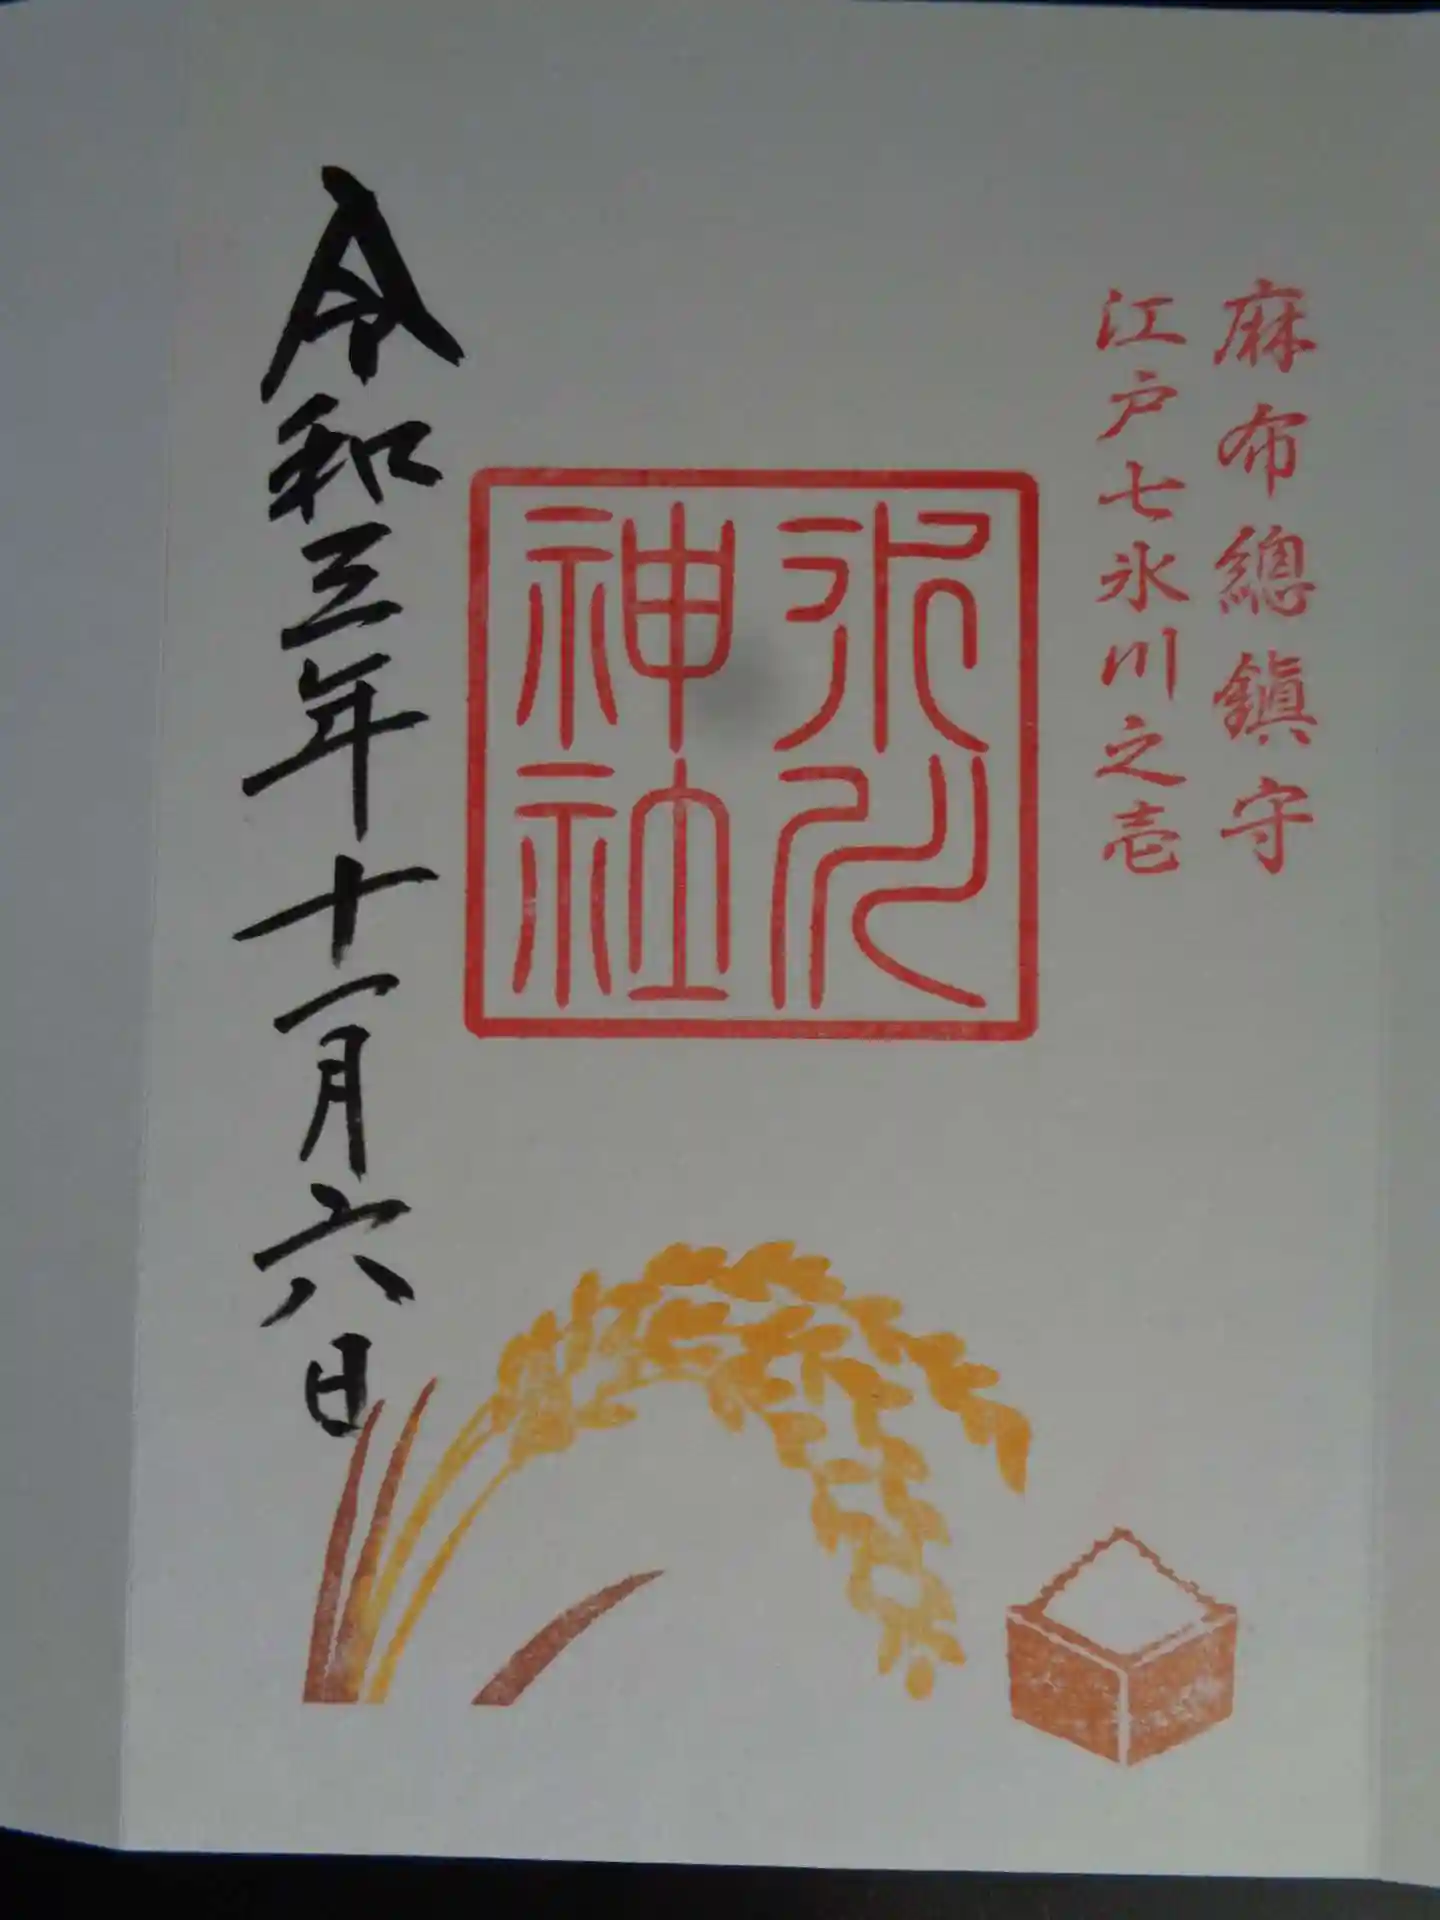 麻布總鎭守
江戸七氷川之壱
氷川
神社
令和三年十一月六日